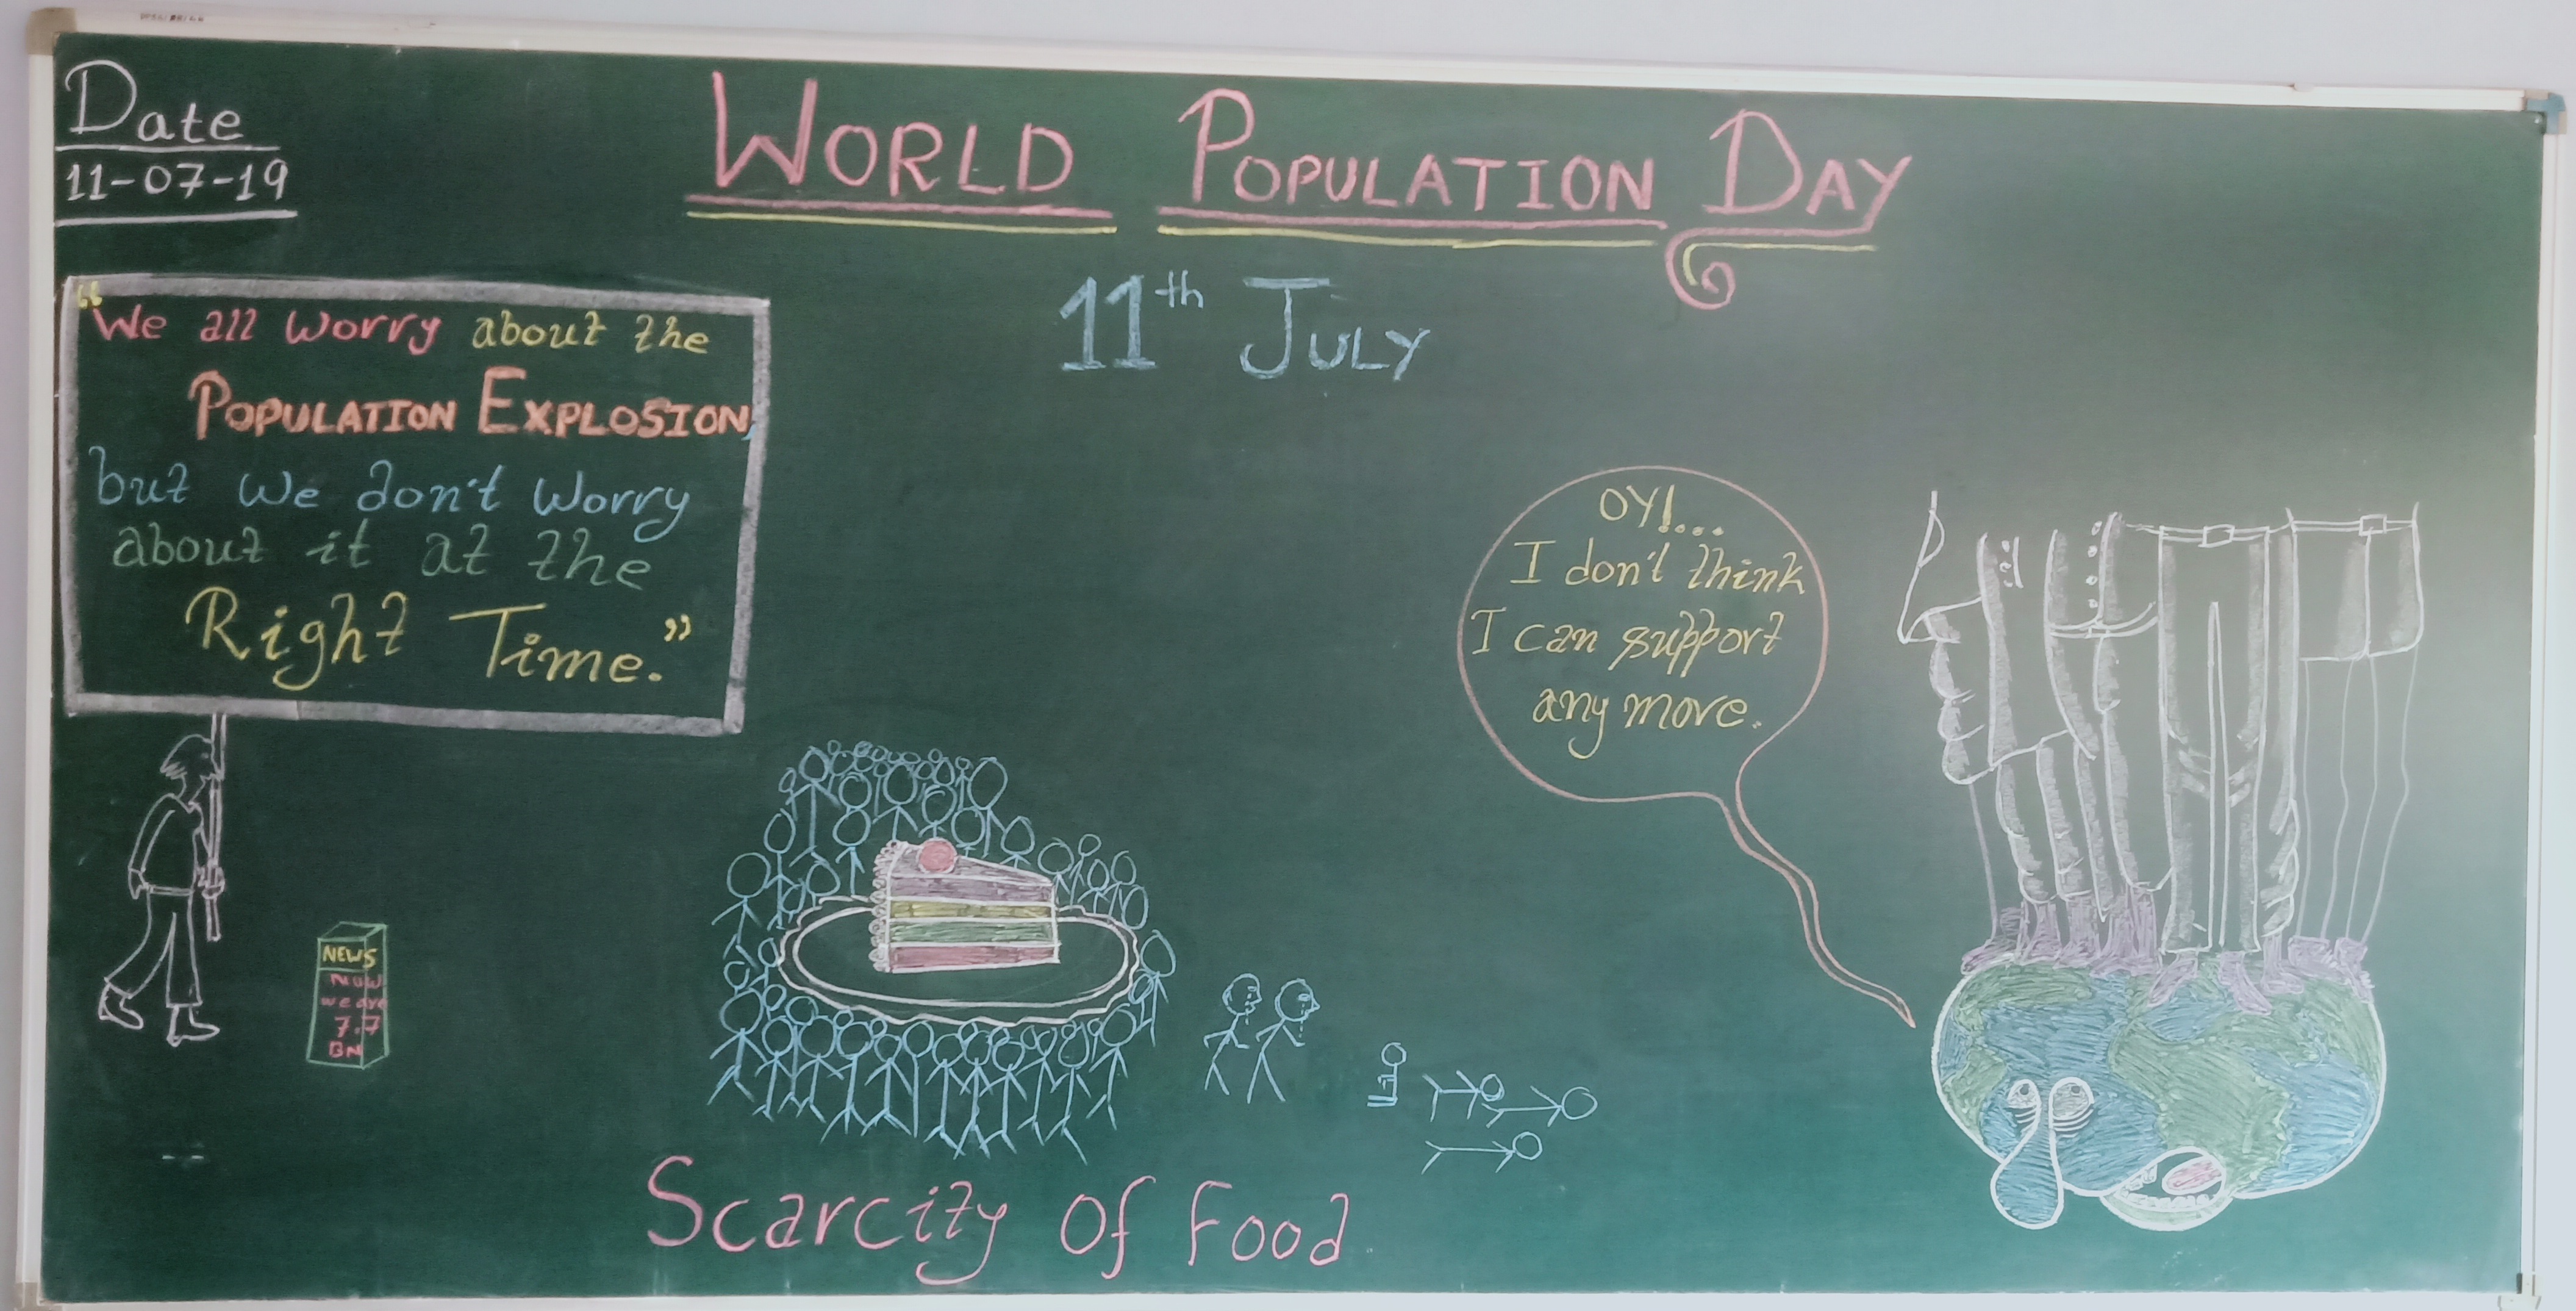 Date
11-07-19
WORLD POPULATION DAY
11th JULY
“We all worry about the
POPULATION EXPLOSION,
but we don't worry
about it at the
Right Time.”
OY!...
I don't think
I can support
any more.
NEWS
NOW
we are
7.7
BN
Scarcity Of Food